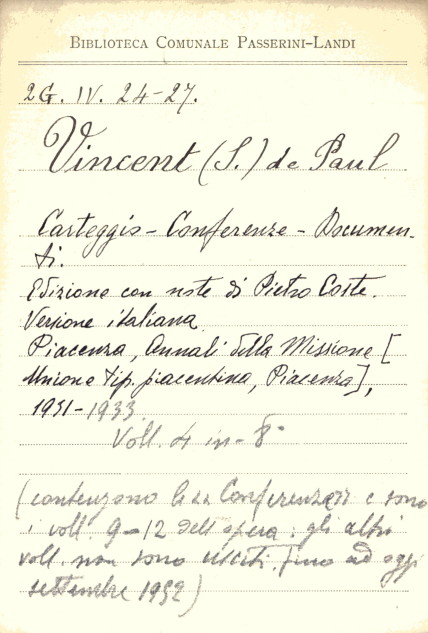 BIBLIOTECA COMUNALE PASSERINI-LANDI
2G. IV. 24-27.
Vincent (S.) de Paul
Carteggio - Conferenze - Documen-
ti.
Edizione con note di Pietro Coste.
Versione italiana
Piacenza, Annali della Missione [
Unione tip. piacentina, Piacenza],
1931-1933.
Voll. 4 in-8°
(contengono le Conferenze e sono
i voll. 9-12 dell'opera: gli altri
voll. non sono usciti fino ad oggi
settembre 1952)